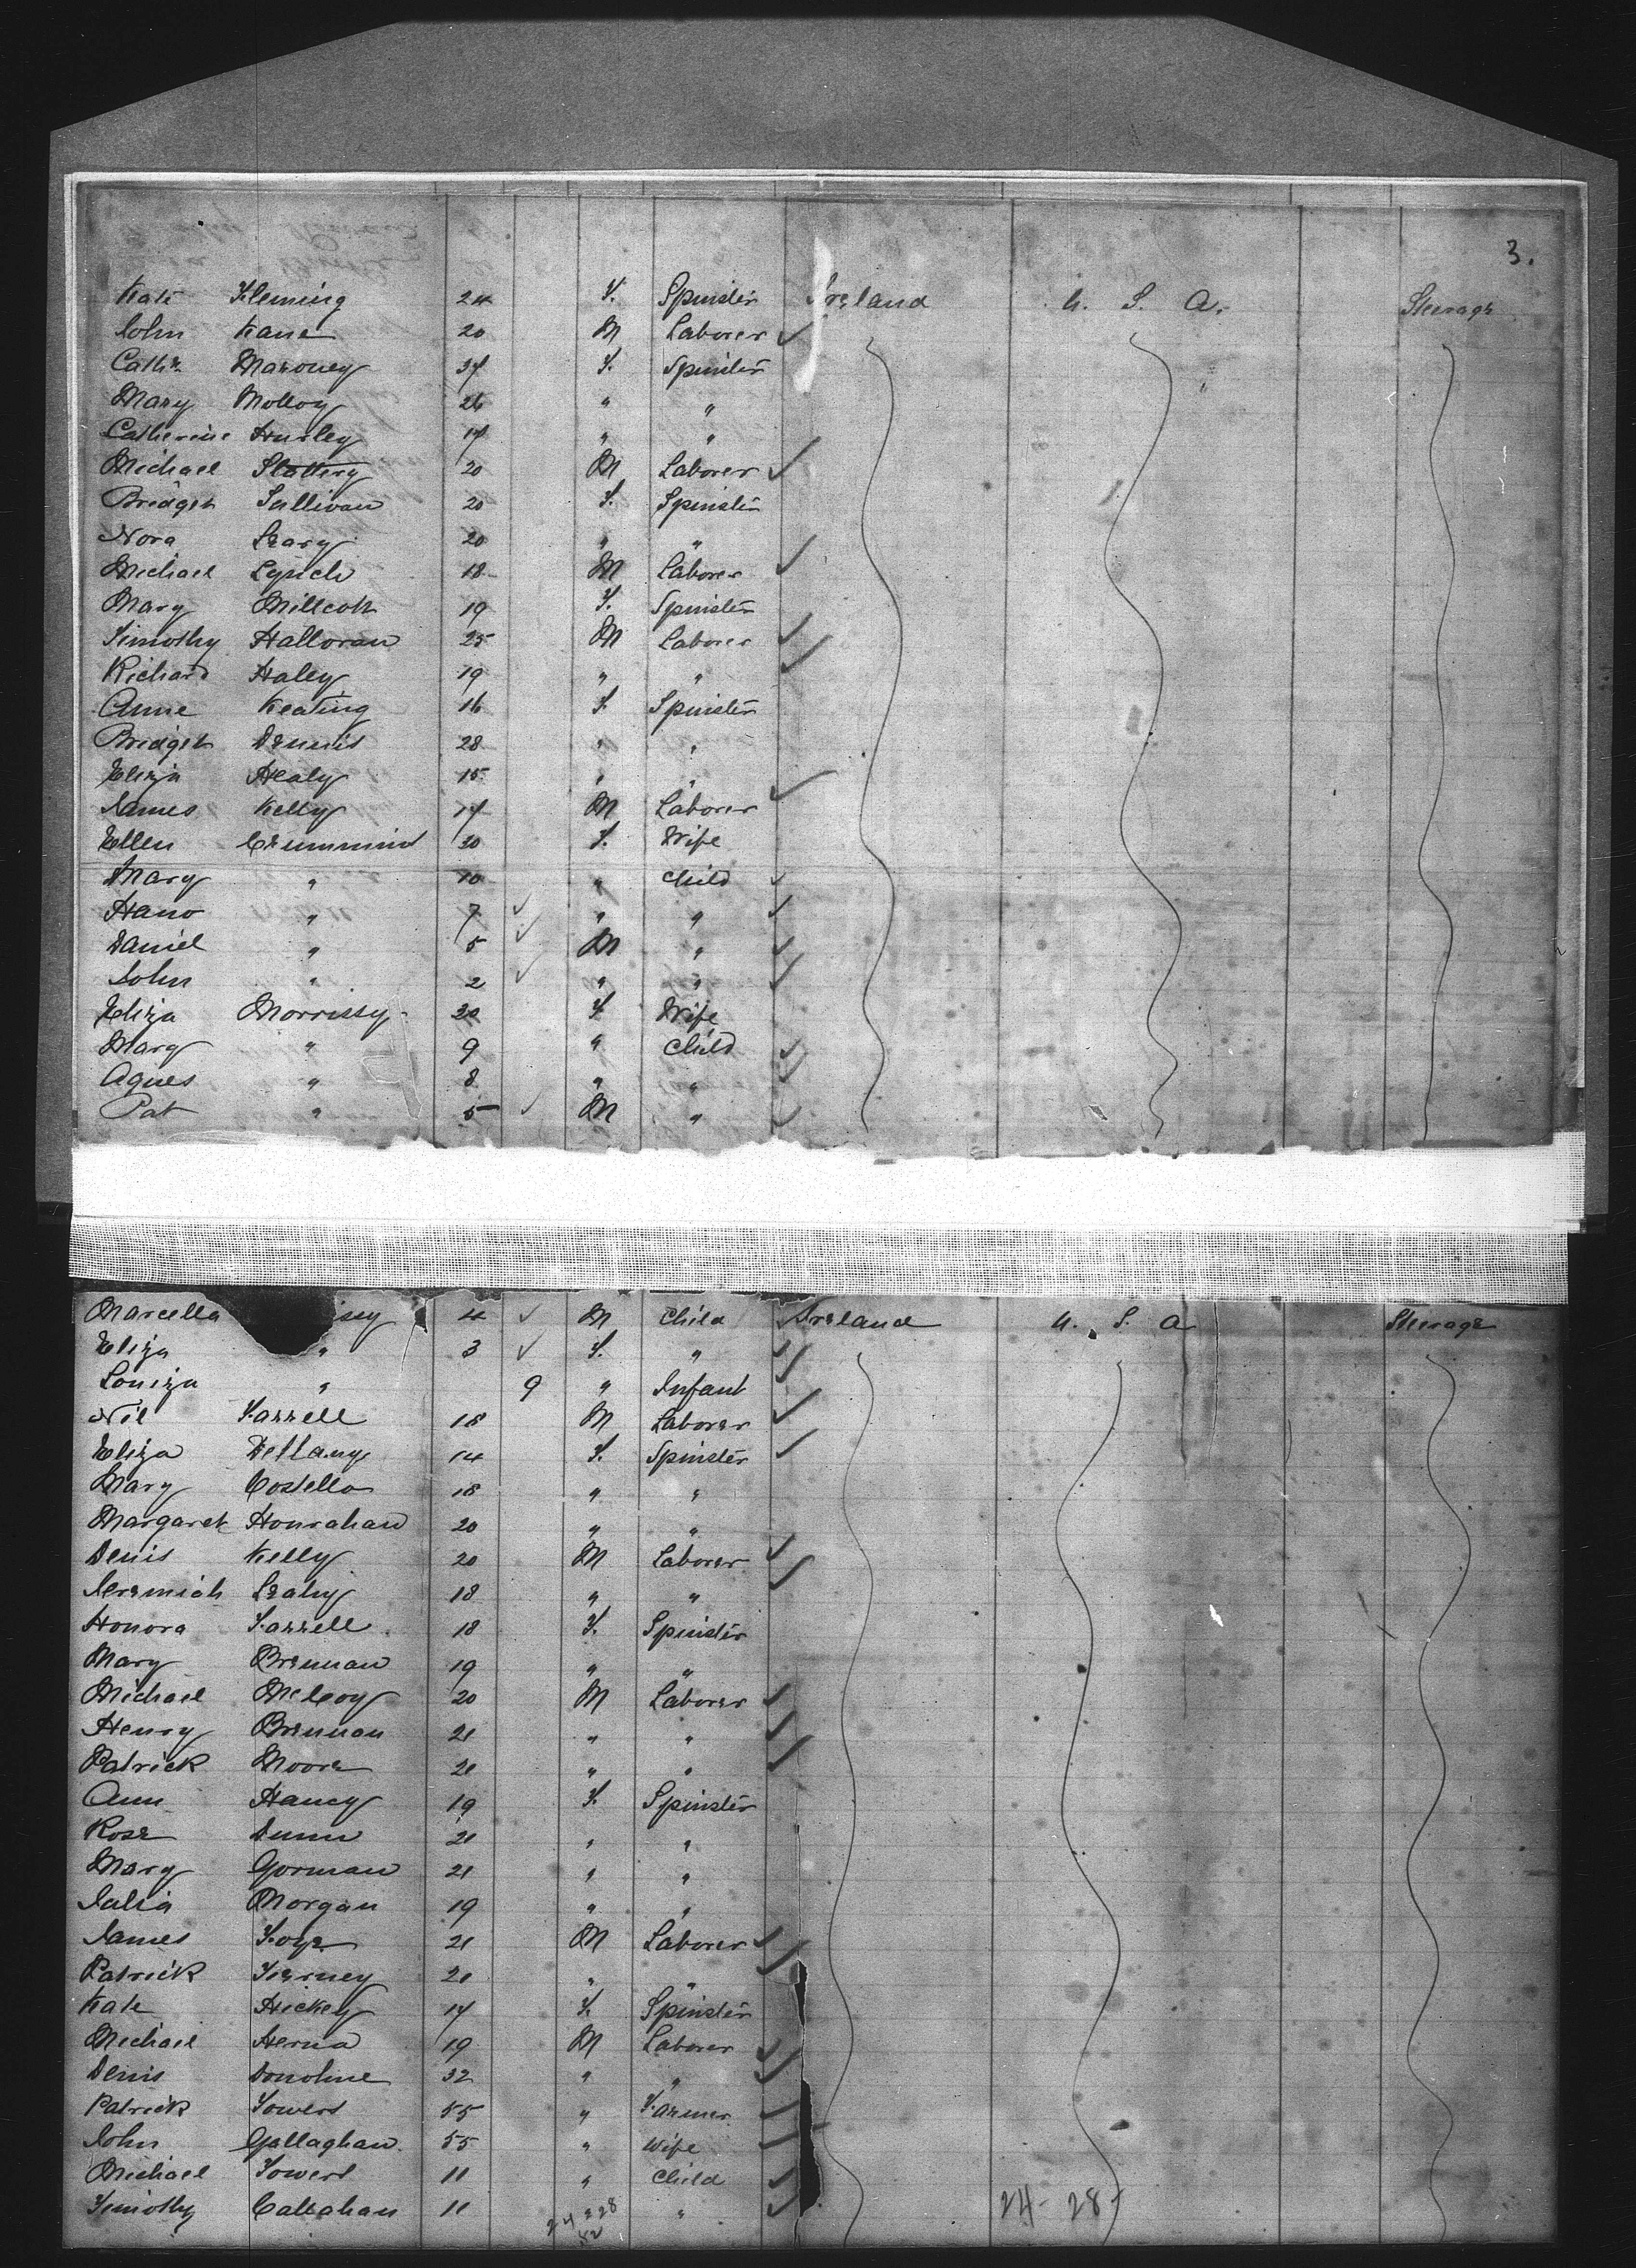 3.
Kate Fleming 24 F. Spinster Ireland U. S. A. Steerage
John Kane 20 M Laborer ✓
Cathe. Maroney 37 F. Spinster
Mary Molloy 26 " "
Catherine Hurley 17 " "
Michael Slattery 20 M Laborer ✓
Bridget Sullivan 20 F. Spinster
Nora Leary 20 " "
Michael Lynch 18 M Laborer ✓
Mary Millcott 19 F. Spinster
Timothy Halloran 25 M Laborer ✓
Richard Haley 19 " " ✓
Anne Keating 16 F. Spinster
Bridget Dennis 28 " "
Eliza Healy 15 " "
James Kelly 17 M Laborer ✓
Ellen Crummind 30 F. Wife
Mary " 10 " Child ✓
Hano " 7 ✓ " " ✓
Daniel " 5 ✓ M " ✓
John " 2 ✓ " " ✓
Eliza Morrissy 30 F Wife
Mary " 9 " Child ✓
Agnes " 8 " " ✓
Pat " 5 ✓ M " ✓
Marcella issy 4 ✓ M Child Ireland U. S. A Steerage
Eliza " 3 ✓ F. " ✓
Louiza " 9 " Infant ✓
Nil Farrell 18 M Laborer ✓
Eliza Dellany 14 F. Spinster ✓
Mary Costello 18 " "
Margaret Hourahan 20 " "
Denis Kelly 20 M Laborer ✓
Jeremiah Leahy 18 " " ✓
Honora Farrell 18 F. Spinster
Mary Brennan 19 " "
Michael McEvoy 20 M Laborer ✓
Henry Brennan 21 " " ✓
Patrick Moore 21 " " ✓
Ann Haney 19 F. Spinster
Rose Dunn 21 " "
Mary Gorman 21 " "
Julia Morgan 19 " "
James Foye 21 M Laborer ✓
Patrick Tierney 21 " " ✓
Kate Hickey 17 F. Spinster
Michael Herna 19 M Laborer ✓
Denis Donohue 32 " " ✓
Patrick Towers 55 " Farmer ✓
John Gallaghan 55 " Wife ✓
Michael Towers 11 " Child ✓
Timothy Callahan 11 " " ✓
24 28 24 - 28
52